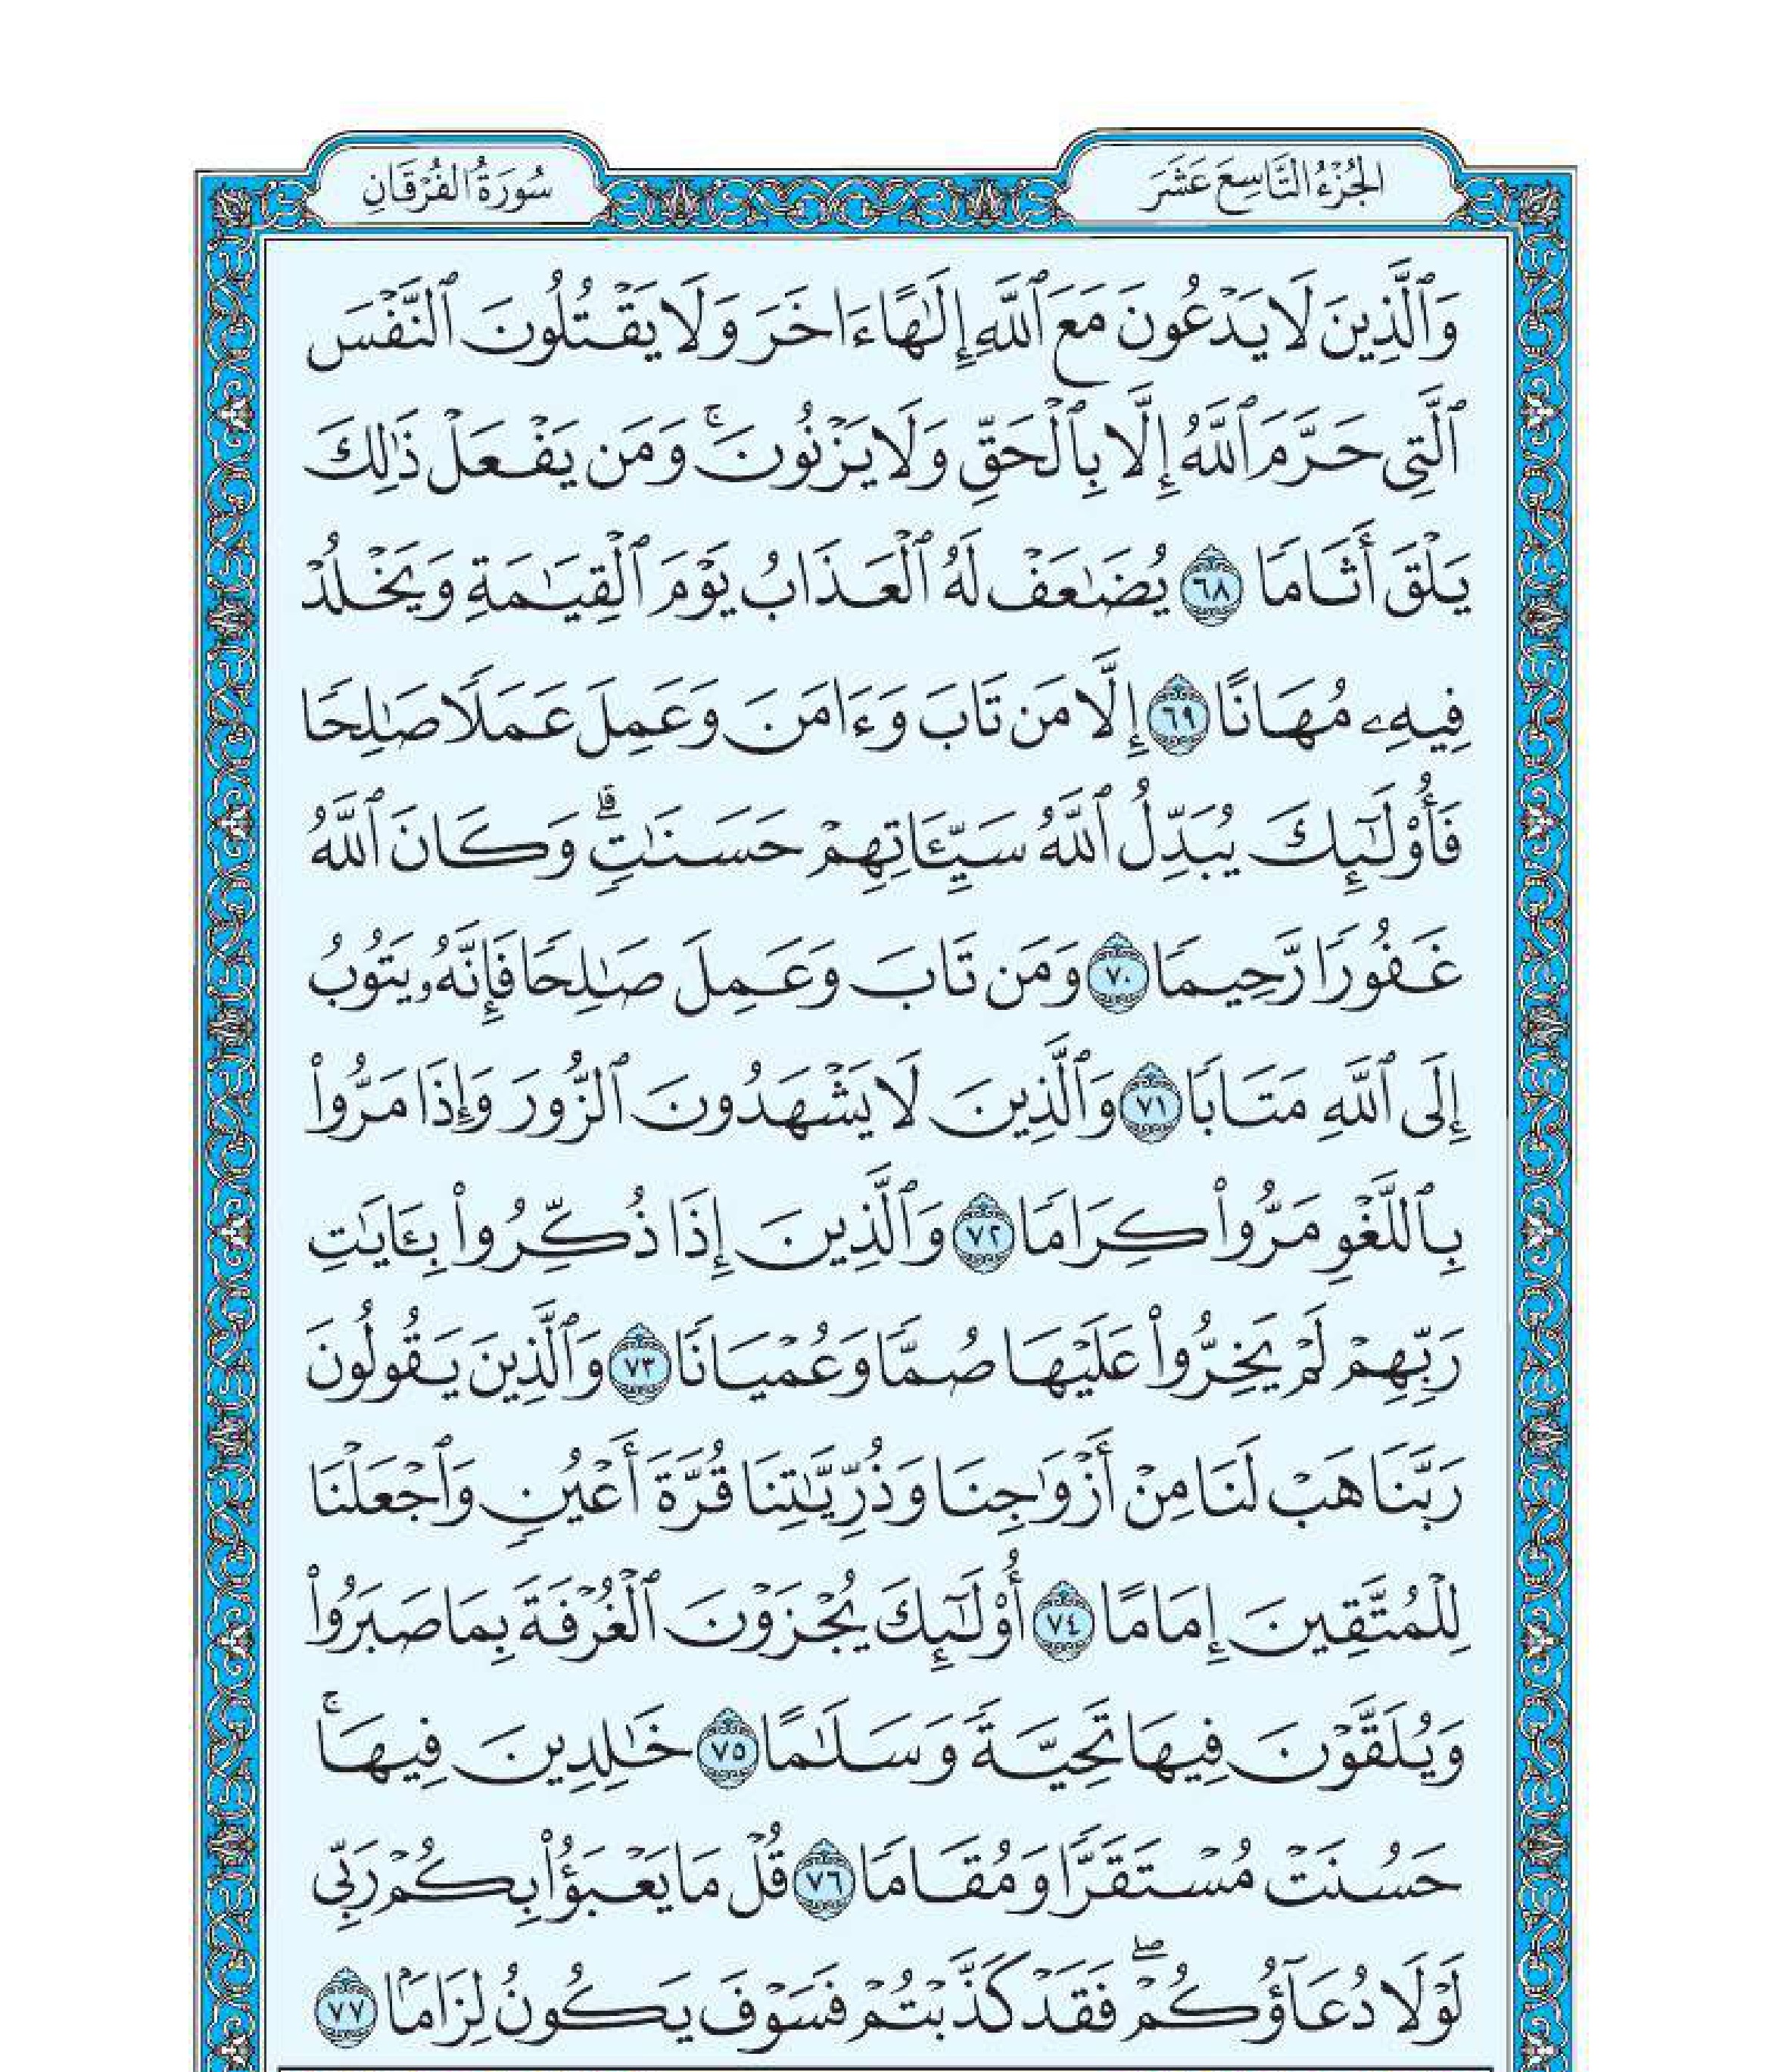 الجُزْءُ التَّاسِعَ عَشَرَ
سُورَةُ الفُرْقَانِ
وَٱلَّذِينَ لَا يَدْعُونَ مَعَ ٱللَّهِ إِلَٰهًا ءَاخَرَ وَلَا يَقْتُلُونَ ٱلنَّفْسَ
ٱلَّتِى حَرَّمَ ٱللَّهُ إِلَّا بِٱلْحَقِّ وَلَا يَزْنُونَۚ وَمَن يَفْعَلْ ذَٰلِكَ
يَلْقَ أَثَامًا ٦٨ يُضَٰعَفْ لَهُ ٱلْعَذَابُ يَوْمَ ٱلْقِيَٰمَةِ وَيَخْلُدْ
فِيهِۦ مُهَانًا ٦٩ إِلَّا مَن تَابَ وَءَامَنَ وَعَمِلَ عَمَلًا صَٰلِحًا
فَأُو۟لَٰٓئِكَ يُبَدِّلُ ٱللَّهُ سَيِّـَٔاتِهِمْ حَسَنَٰتٍۗ وَكَانَ ٱللَّهُ
غَفُورًا رَّحِيمًا ٧٠ وَمَن تَابَ وَعَمِلَ صَٰلِحًا فَإِنَّهُۥ يَتُوبُ
إِلَى ٱللَّهِ مَتَابًا ٧١ وَٱلَّذِينَ لَا يَشْهَدُونَ ٱلزُّورَ وَإِذَا مَرُّوا۟
بِٱللَّغْوِ مَرُّوا۟ كِرَامًا ٧٢ وَٱلَّذِينَ إِذَا ذُكِّرُوا۟ بِـَٔايَٰتِ
رَبِّهِمْ لَمْ يَخِرُّوا۟ عَلَيْهَا صُمًّا وَعُمْيَانًا ٧٣ وَٱلَّذِينَ يَقُولُونَ
رَبَّنَا هَبْ لَنَا مِنْ أَزْوَٰجِنَا وَذُرِّيَّٰتِنَا قُرَّةَ أَعْيُنٍ وَٱجْعَلْنَا
لِلْمُتَّقِينَ إِمَامًا ٧٤ أُو۟لَٰٓئِكَ يُجْزَوْنَ ٱلْغُرْفَةَ بِمَا صَبَرُوا۟
وَيُلَقَّوْنَ فِيهَا تَحِيَّةً وَسَلَٰمًا ٧٥ خَٰلِدِينَ فِيهَاۚ
حَسُنَتْ مُسْتَقَرًّا وَمُقَامًا ٧٦ قُلْ مَا يَعْبَؤُا۟ بِكُمْ رَبِّى
لَوْلَا دُعَآؤُكُمْۖ فَقَدْ كَذَّبْتُمْ فَسَوْفَ يَكُونُ لِزَامًۢا ٧٧